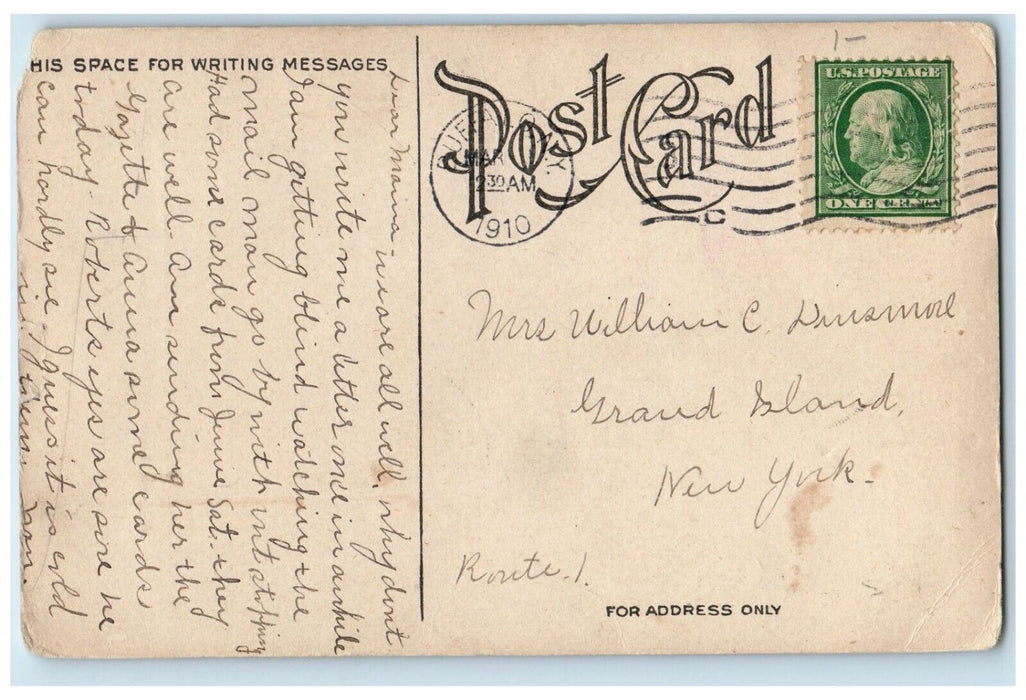 HIS SPACE FOR WRITING MESSAGES
Post Card
BUFFALO, N.Y.
MAR
230 AM
1910
U.S. POSTAGE
ONE CENT
1-
Dear Mama we are all well. why dont
you write me a letter once in awhile
I am getting blind watching the
mail man go by with out stopping
Had some cards from Jennie Sat. they
are well. Am sending her the
Gazette & Anna some cards
today. Roberts eyes are sore he
can hardly see. I guess it is cold
in them.
Mrs William C. Dinsmore
Grand Island,
New York.
Route 1.
FOR ADDRESS ONLY